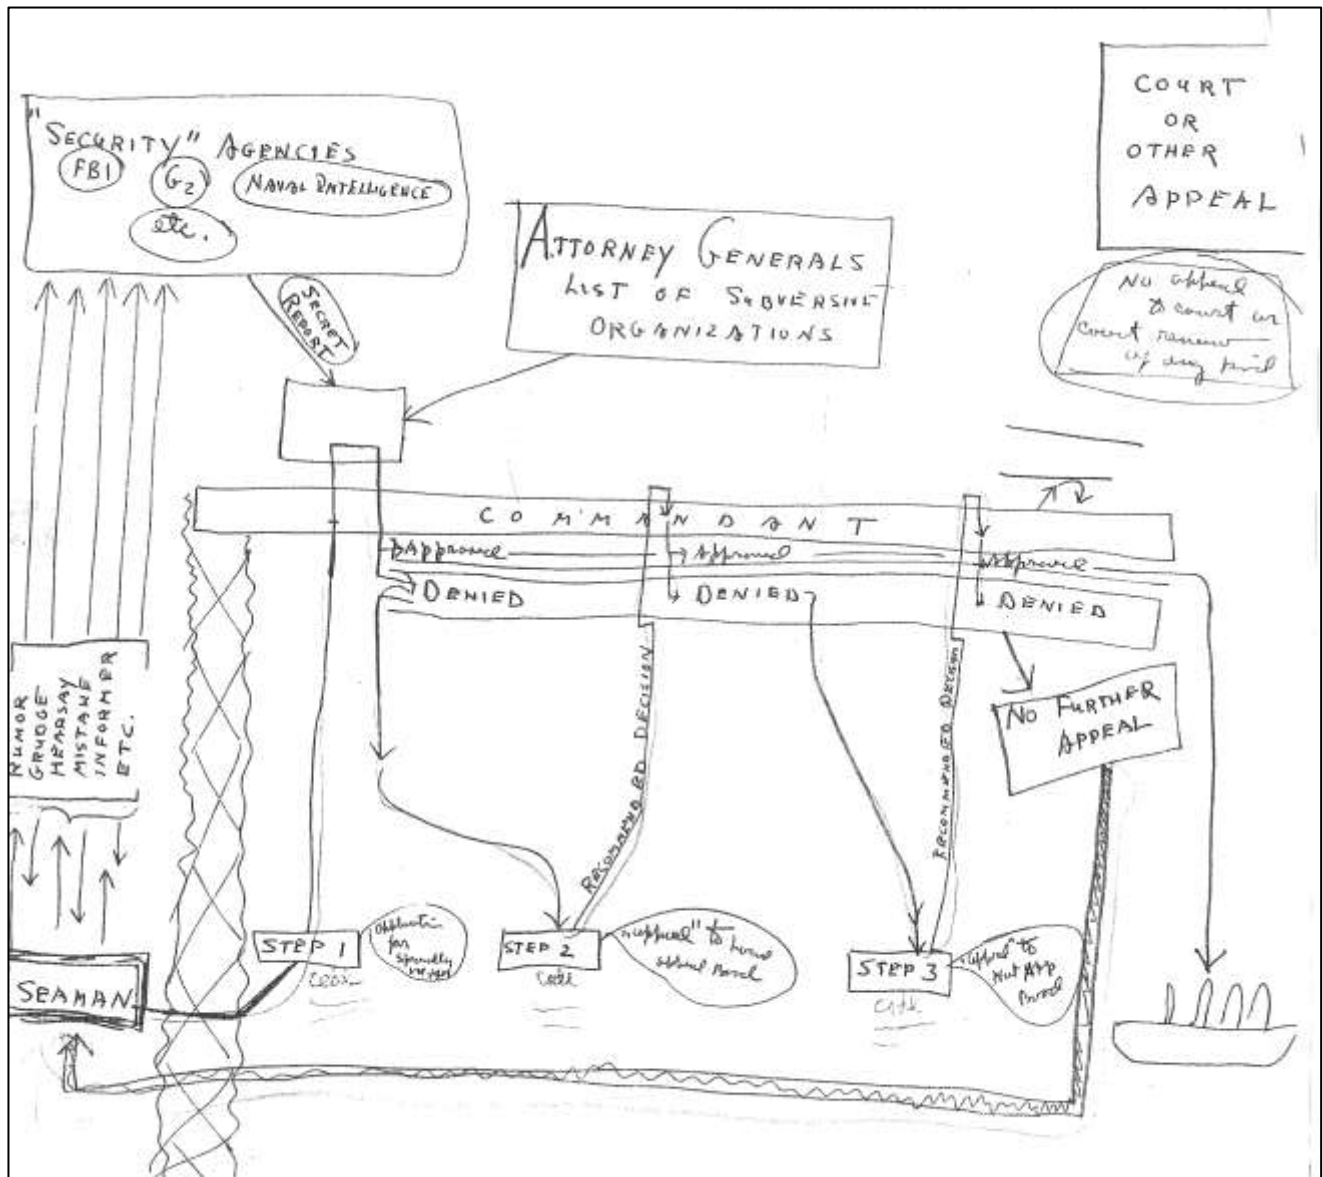 "SECURITY" AGENCIES
FBI
G2
NAVAL INTELLIGENCE
etc.
SECRET
REPORT
ATTORNEY GENERALS
LIST OF SUBVERSIVE
ORGANIZATIONS
COURT
OR
OTHER
APPEAL
No appeal
to court or
court review
of any kind
COMMANDANT
Approved
Approved
Approved
DENIED
DENIED
DENIED
NO FURTHER
APPEAL
RUMOR
GRUDGE
HEARSAY
MISTAKE
INFORMER
ETC.
RECOMMENDED DECISION
RECOMMENDED DECISION
SEAMAN
STEP 1
application
for
STEP 2
"appeal" to local
appeal board
STEP 3
"appeal" to
Nat App
Board